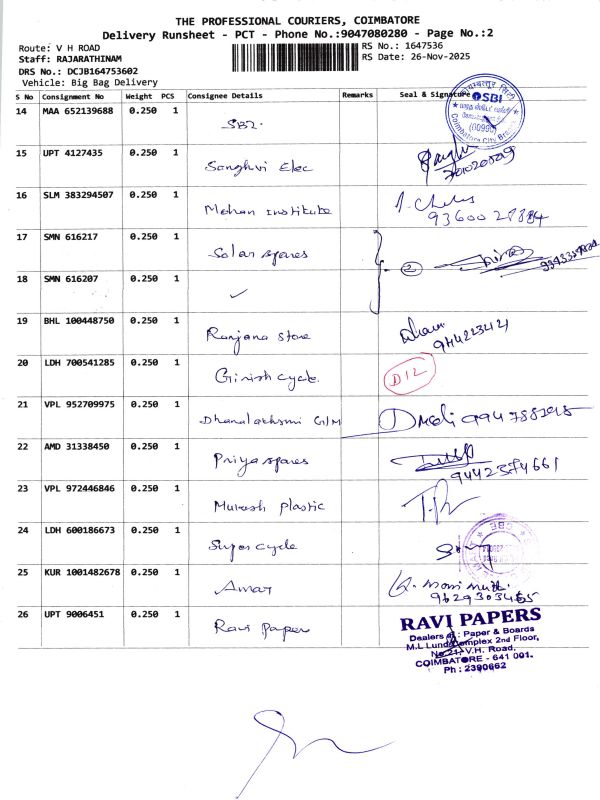 THE PROFESSIONAL COURIERS, COIMBATORE
Delivery Runsheet - PCT - Phone No.:9047080280 - Page No.:2
Route: V H ROAD
RS No.: 1647536
Staff: RAJARATHINAM
RS Date: 26-Nov-2025
DRS No.: DCJB164753602
Vehicle: Big Bag Delivery
S No Consignment No Weight PCS Consignee Details Remarks Seal & Signature
SBI
(00990)
Coimbatore City Branch
14 MAA 652139688 0.250 1 SBI.
15 UPT 4127435 0.250 1 Sanghvi Elec
16 SLM 383294507 0.250 1 Mohan institute
17 SMN 616217 0.250 1 Solar spares
2
18 SMN 616207 0.250 1 ✓
19 BHL 100448750 0.250 1 Ranjana Store
20 LDH 700541285 0.250 1 Girish cycle. D12
21 VPL 952709975 0.250 1 Dhanalakshmi G/M
22 AMD 31338450 0.250 1 Priya spares
9442374661
23 VPL 972446846 0.250 1 Mukesh plastic
24 LDH 600186673 0.250 1 Super cycle
25 KUR 1001482678 0.250 1 Amar
26 UPT 9006451 0.250 1 Ravi paper
RAVI PAPERS
Dealers in : Paper & Boards
M.L Lund Complex 2nd Floor,
No.21, V.H. Road,
COIMBATORE - 641 001.
Ph : 2390662